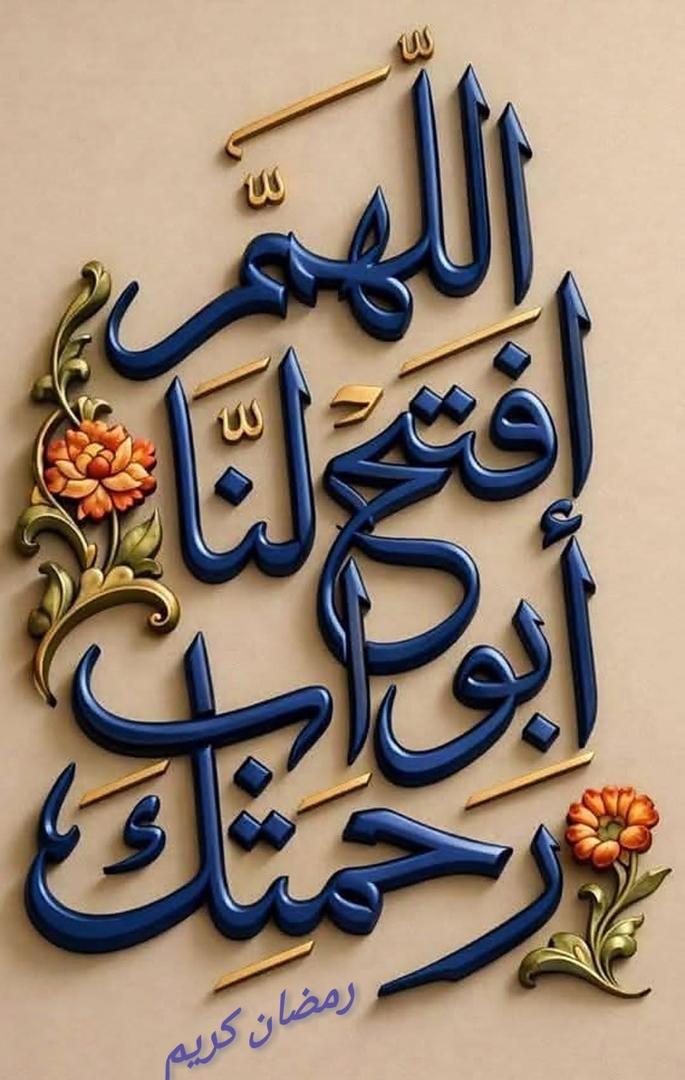 اللّهمّ
افتح لنّا
أبواب
رحمتك
رمضان كريم